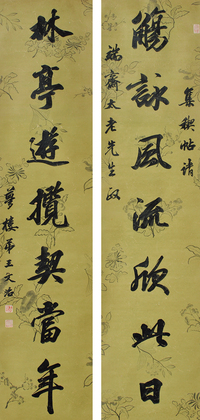 集禊帖請
觴詠風流欣此日
端齋太老先生正
林亭遊攬契當年
夢樓弟王文治